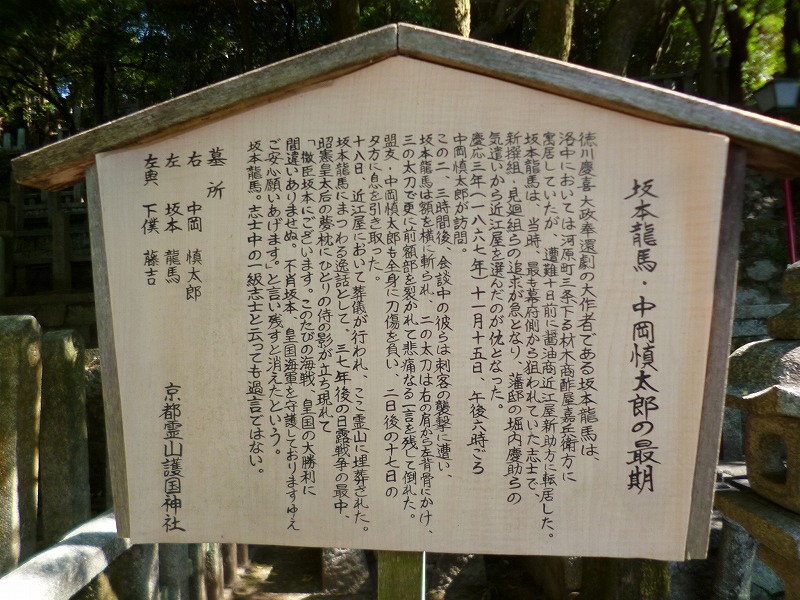 坂本龍馬・中岡慎太郎の最期
徳川慶喜大政奉還劇の大作者である坂本龍馬は、
洛中においては河原町三条下る材木商酢屋嘉兵衛方に
寓居していたが、遭難十日前に醤油商近江屋新助方に転居した。
坂本龍馬は、当時、最も幕府側から狙われていた志士で、
新撰組・見廻組らの追求が急となり、藩邸の堀内慶助らの
気遣いから近江屋を選んだのが仇となった。
慶応三年(一八六七年)十一月十五日、午後六時ごろ
中岡慎太郎が訪問。
この二、三時間後、会談中の彼らは刺客の襲撃に遭い、
坂本龍馬は額を横に斬られ、二の太刀は右の肩から左背骨にかけ、
三の太刀で更に前額部を裂かれて悲痛なる一言を残して倒れた。
盟友・中岡慎太郎も全身に刀傷を負い、二日後の十七日の
夕方に息を引き取った。
十八日、近江屋において葬儀が行われ、ここ霊山に埋葬された。
坂本龍馬にまつわる逸話として、三七年後の日露戦争の最中、
昭憲皇太后の夢枕にひとりの侍の影が立ち現れて
「微臣坂本にございます。このたびの海戦、皇国の大勝利に
間違いありませぬ。不肖坂本、皇国海軍を守護しておりますゆえ
ご安心願いあげます。」と言い残すと消えたという。
坂本龍馬。志士中の一級志士と云っても過言ではない。
墓所
右 中岡 慎太郎
左 坂本 龍馬
左奥 下僕 藤吉
京都霊山護国神社